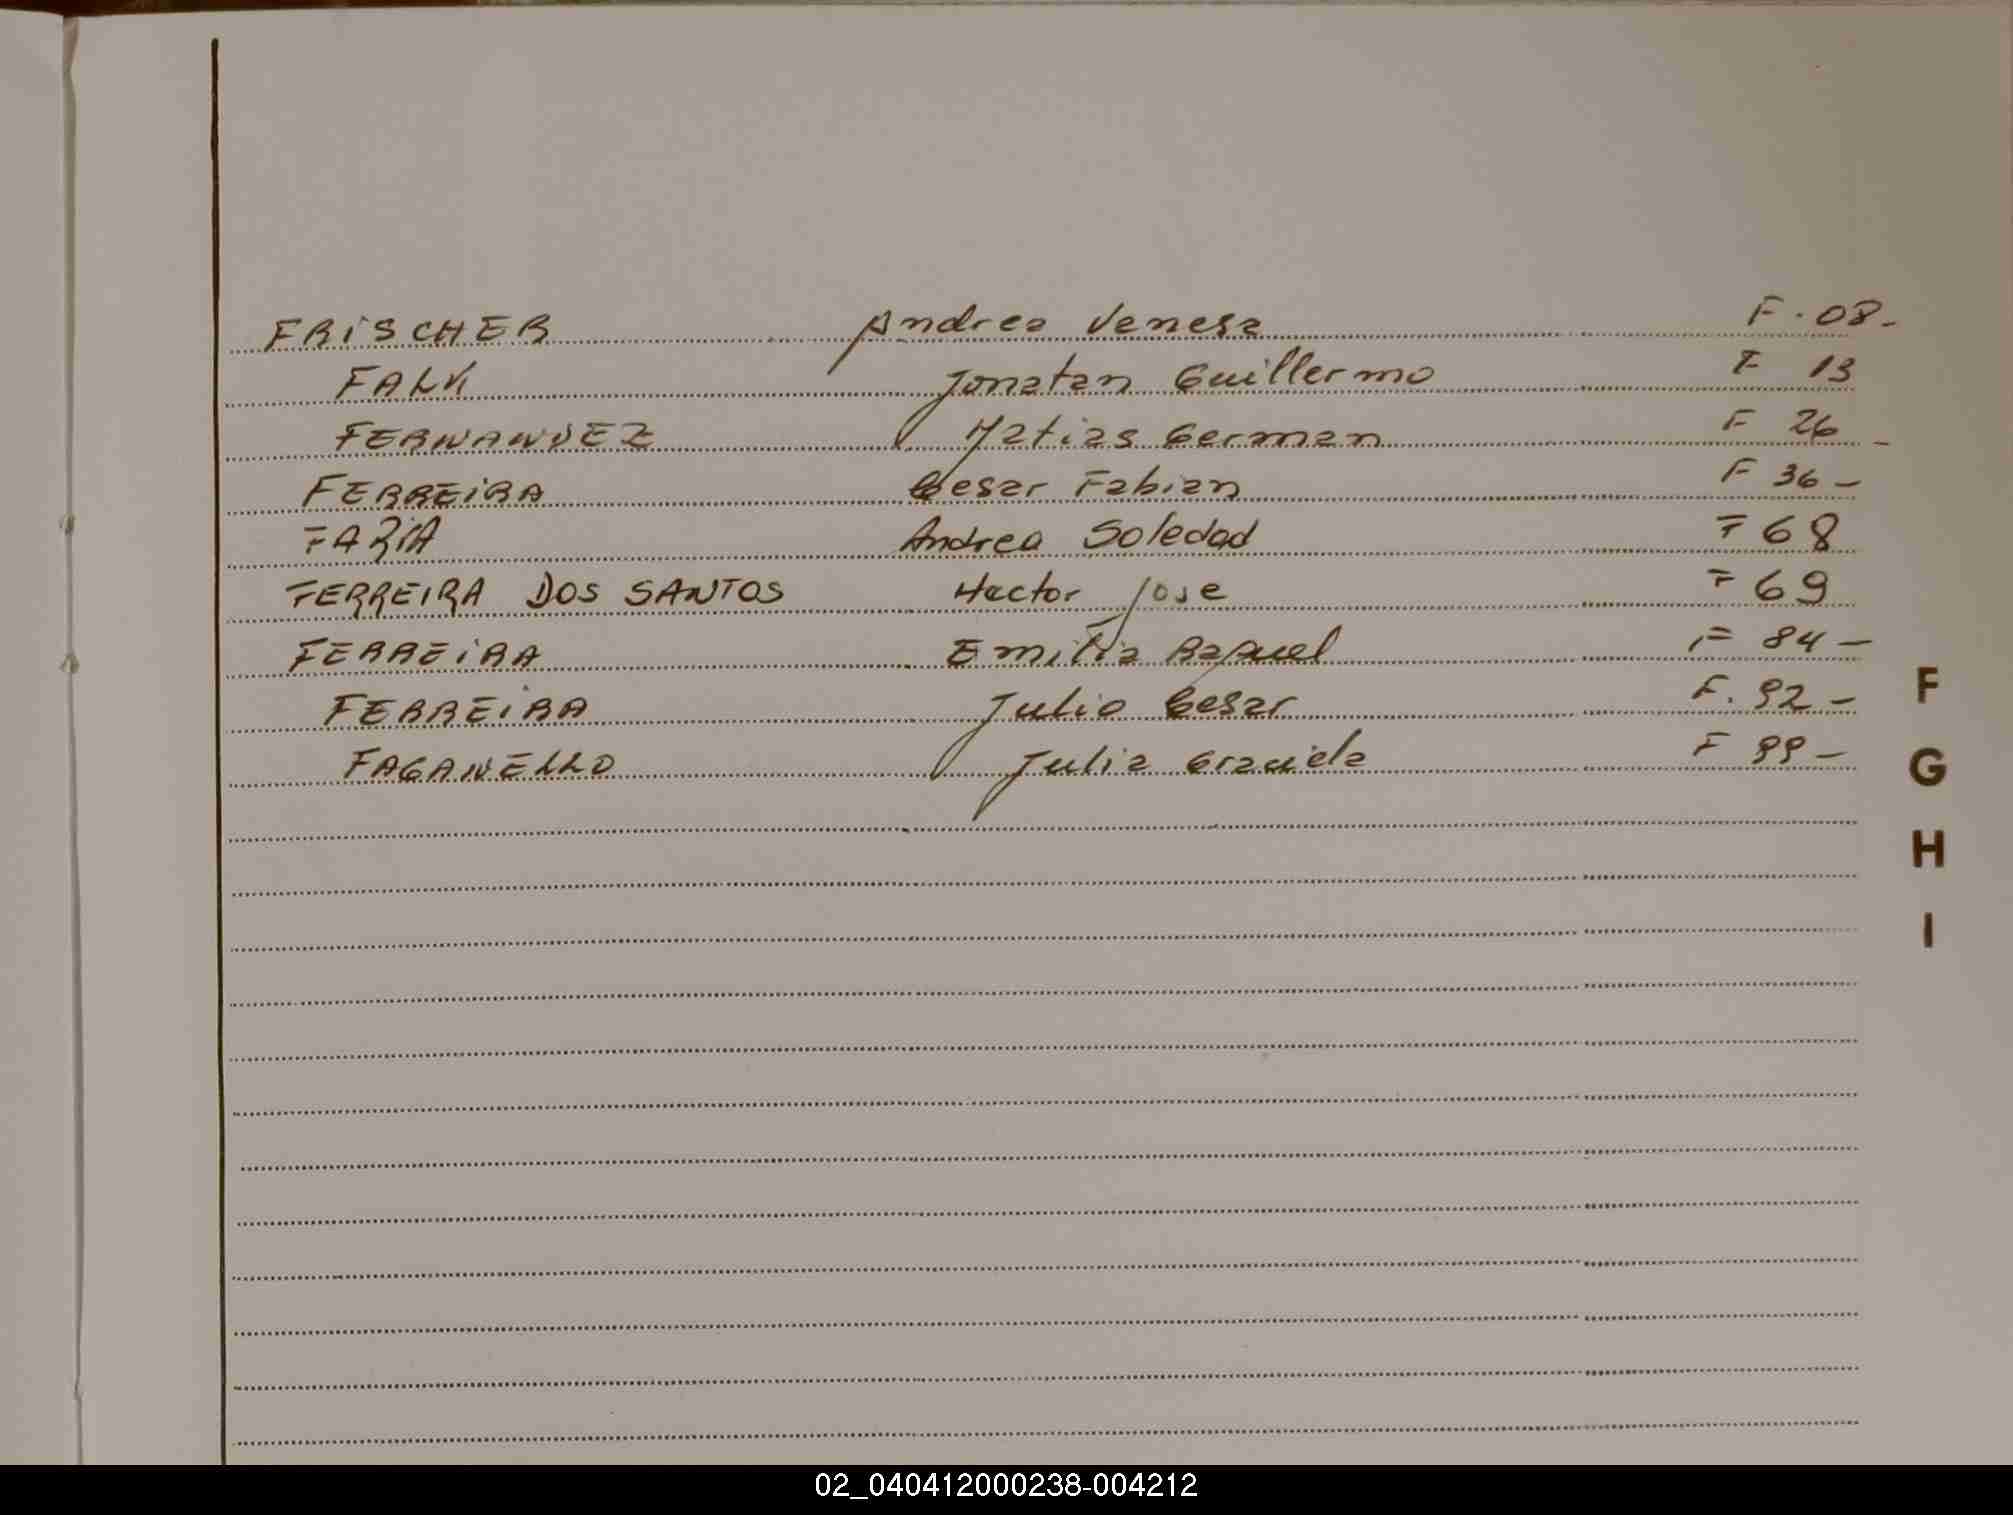 FRISCHER Andrea Venesa F. 08-
FALK Jonatan Guillermo F 13
FERNANDEZ Matias German F 26 -
FERREIRA Cesar Fabian F 36 -
FARIA Andrea Soledad F 68
FERREIRA DOS SANTOS Hector Jose F 69
FERREIRA Emilia Raquel F 84 -
FERREIRA Julio Cesar F. 92 -
FAGANELLO Julia Graciela F 99 -
F
G
H
I
02_040412000238-004212